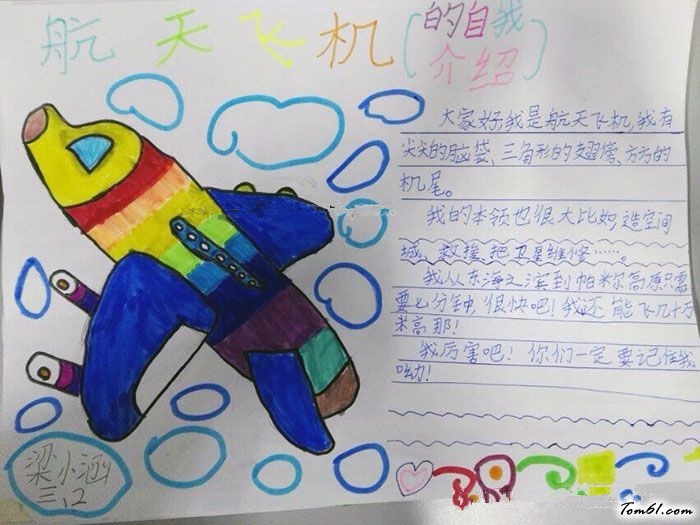 航天飞机(的自我
介绍)
大家好我是航天飞机,我有
尖尖的脑袋、三角形的翅膀、方方的
机尾。
我的本领也很大比如造空间
城、救援、把卫星维修……。
我从东海之滨到帕米尔高原只需
要七分钟,很快吧!我还能飞几十万
米高那!
我厉害吧!你们一定要记住我
呦!
梁小涵
三,2
Tom61.com